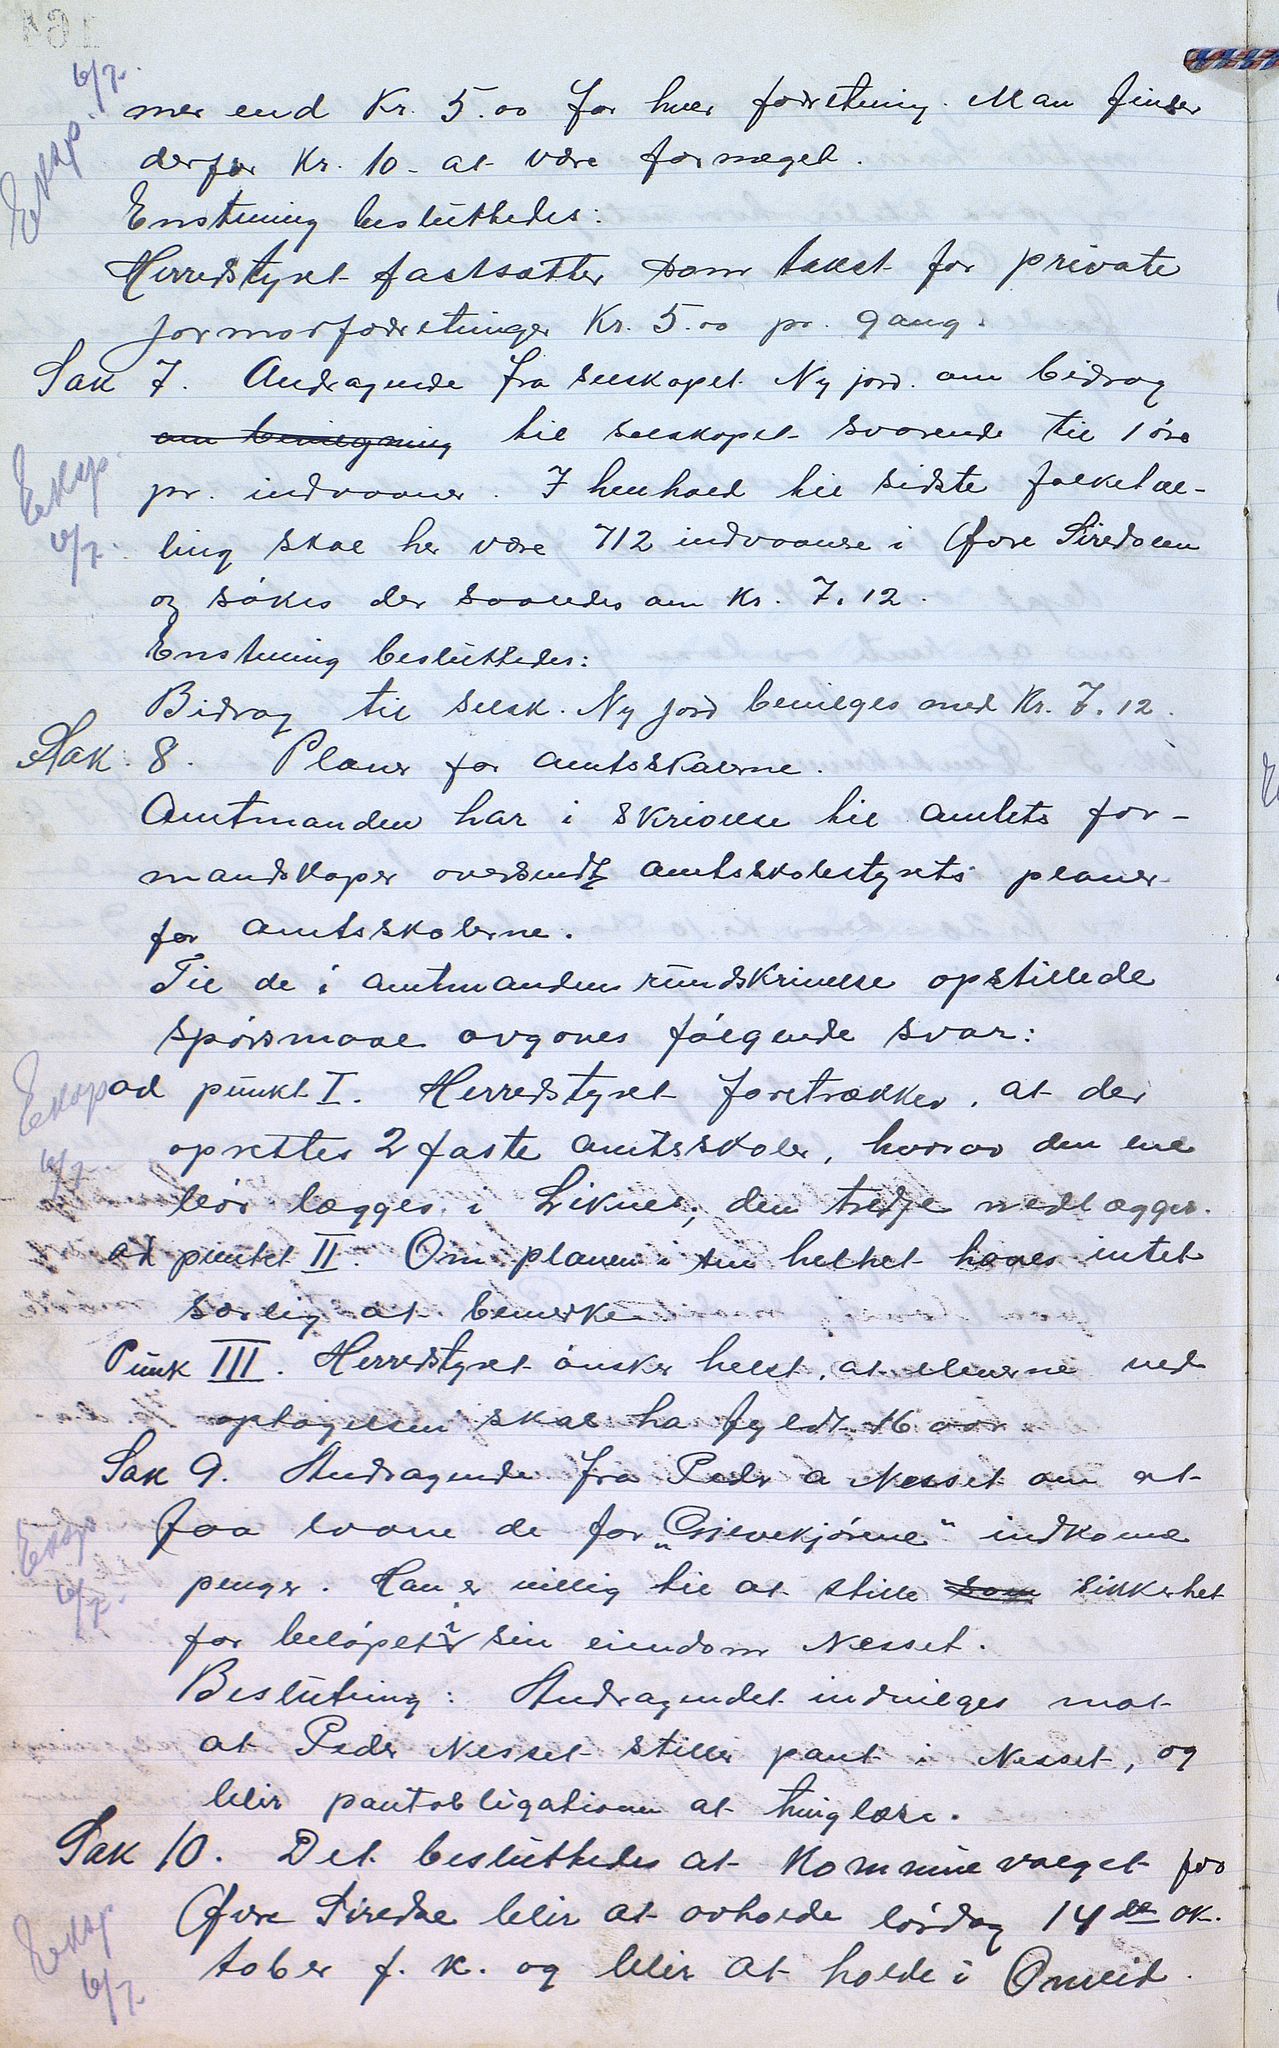 mer end Kr. 5.00 for hver forretning. Man finder
derfor Kr. 10 - at være for meget.
Enstemig besluttedes:
Herredstyret fastsætter som takst for private
jormorforretninger Kr. 5.00 pr. gang.
Sak 7. Andragende fra selskapet Ny jord. om bidrag
om bevilgning til selskapet svarende til 1 øre
pr. indvaaner. I henhold til sidste folketæl-
ling skal her være 712 indvaanere i Øvre Siredalen
og søkes der saaledes om Kr. 7.12.
Enstemig besluttedes:
Bidrag til selsk. Ny jord bevilges med Kr. 7.12.
Sak. 8. Planer for amtsskolerne.
Amtmanden har i skrivelse til amtets for-
mandskaper oversendt amtsskolestyrets planer
for amtsskolerne.
Til de i amtmandens rundskrivelse opstillede
spørsmaal avgaves følgende svar:
ad punkt I. Herredstyret foretrækker, at der
oprettes 2 faste amtsskoler, hvorav den ene
bør lægges i Liknes; den tredje nedlægges.
ad punkt II. Om planen i sin helhet haves intet
særlig at bemerke
Punk III. Herredstyret ønsker helst, at elevene ved
optagelsen skal ha fyldt 16 aar.
Sak 9. Andragende fra Peder A Nesset om at
faa laane de for „ indkomne
penger. Han er villig til at stille som sikkerhet
for beløpet i sin eiendom Nesset.
Beslutning: Andragendet indvilges mot
at Peder Nesset stiller pant i Nesset, og
blir pantobligationen at tinglæse.
Sak 10. Det besluttedes at Kommunevalget for
Øvre Siredal blir at avholde lørdag 14de ok-
tober f. k. og blir at holde i Omlid.
Eksp. 6/7.
Eksp. 6/7.
Eksp 6/7.
Eksp 6/7.
Eksp 6/7